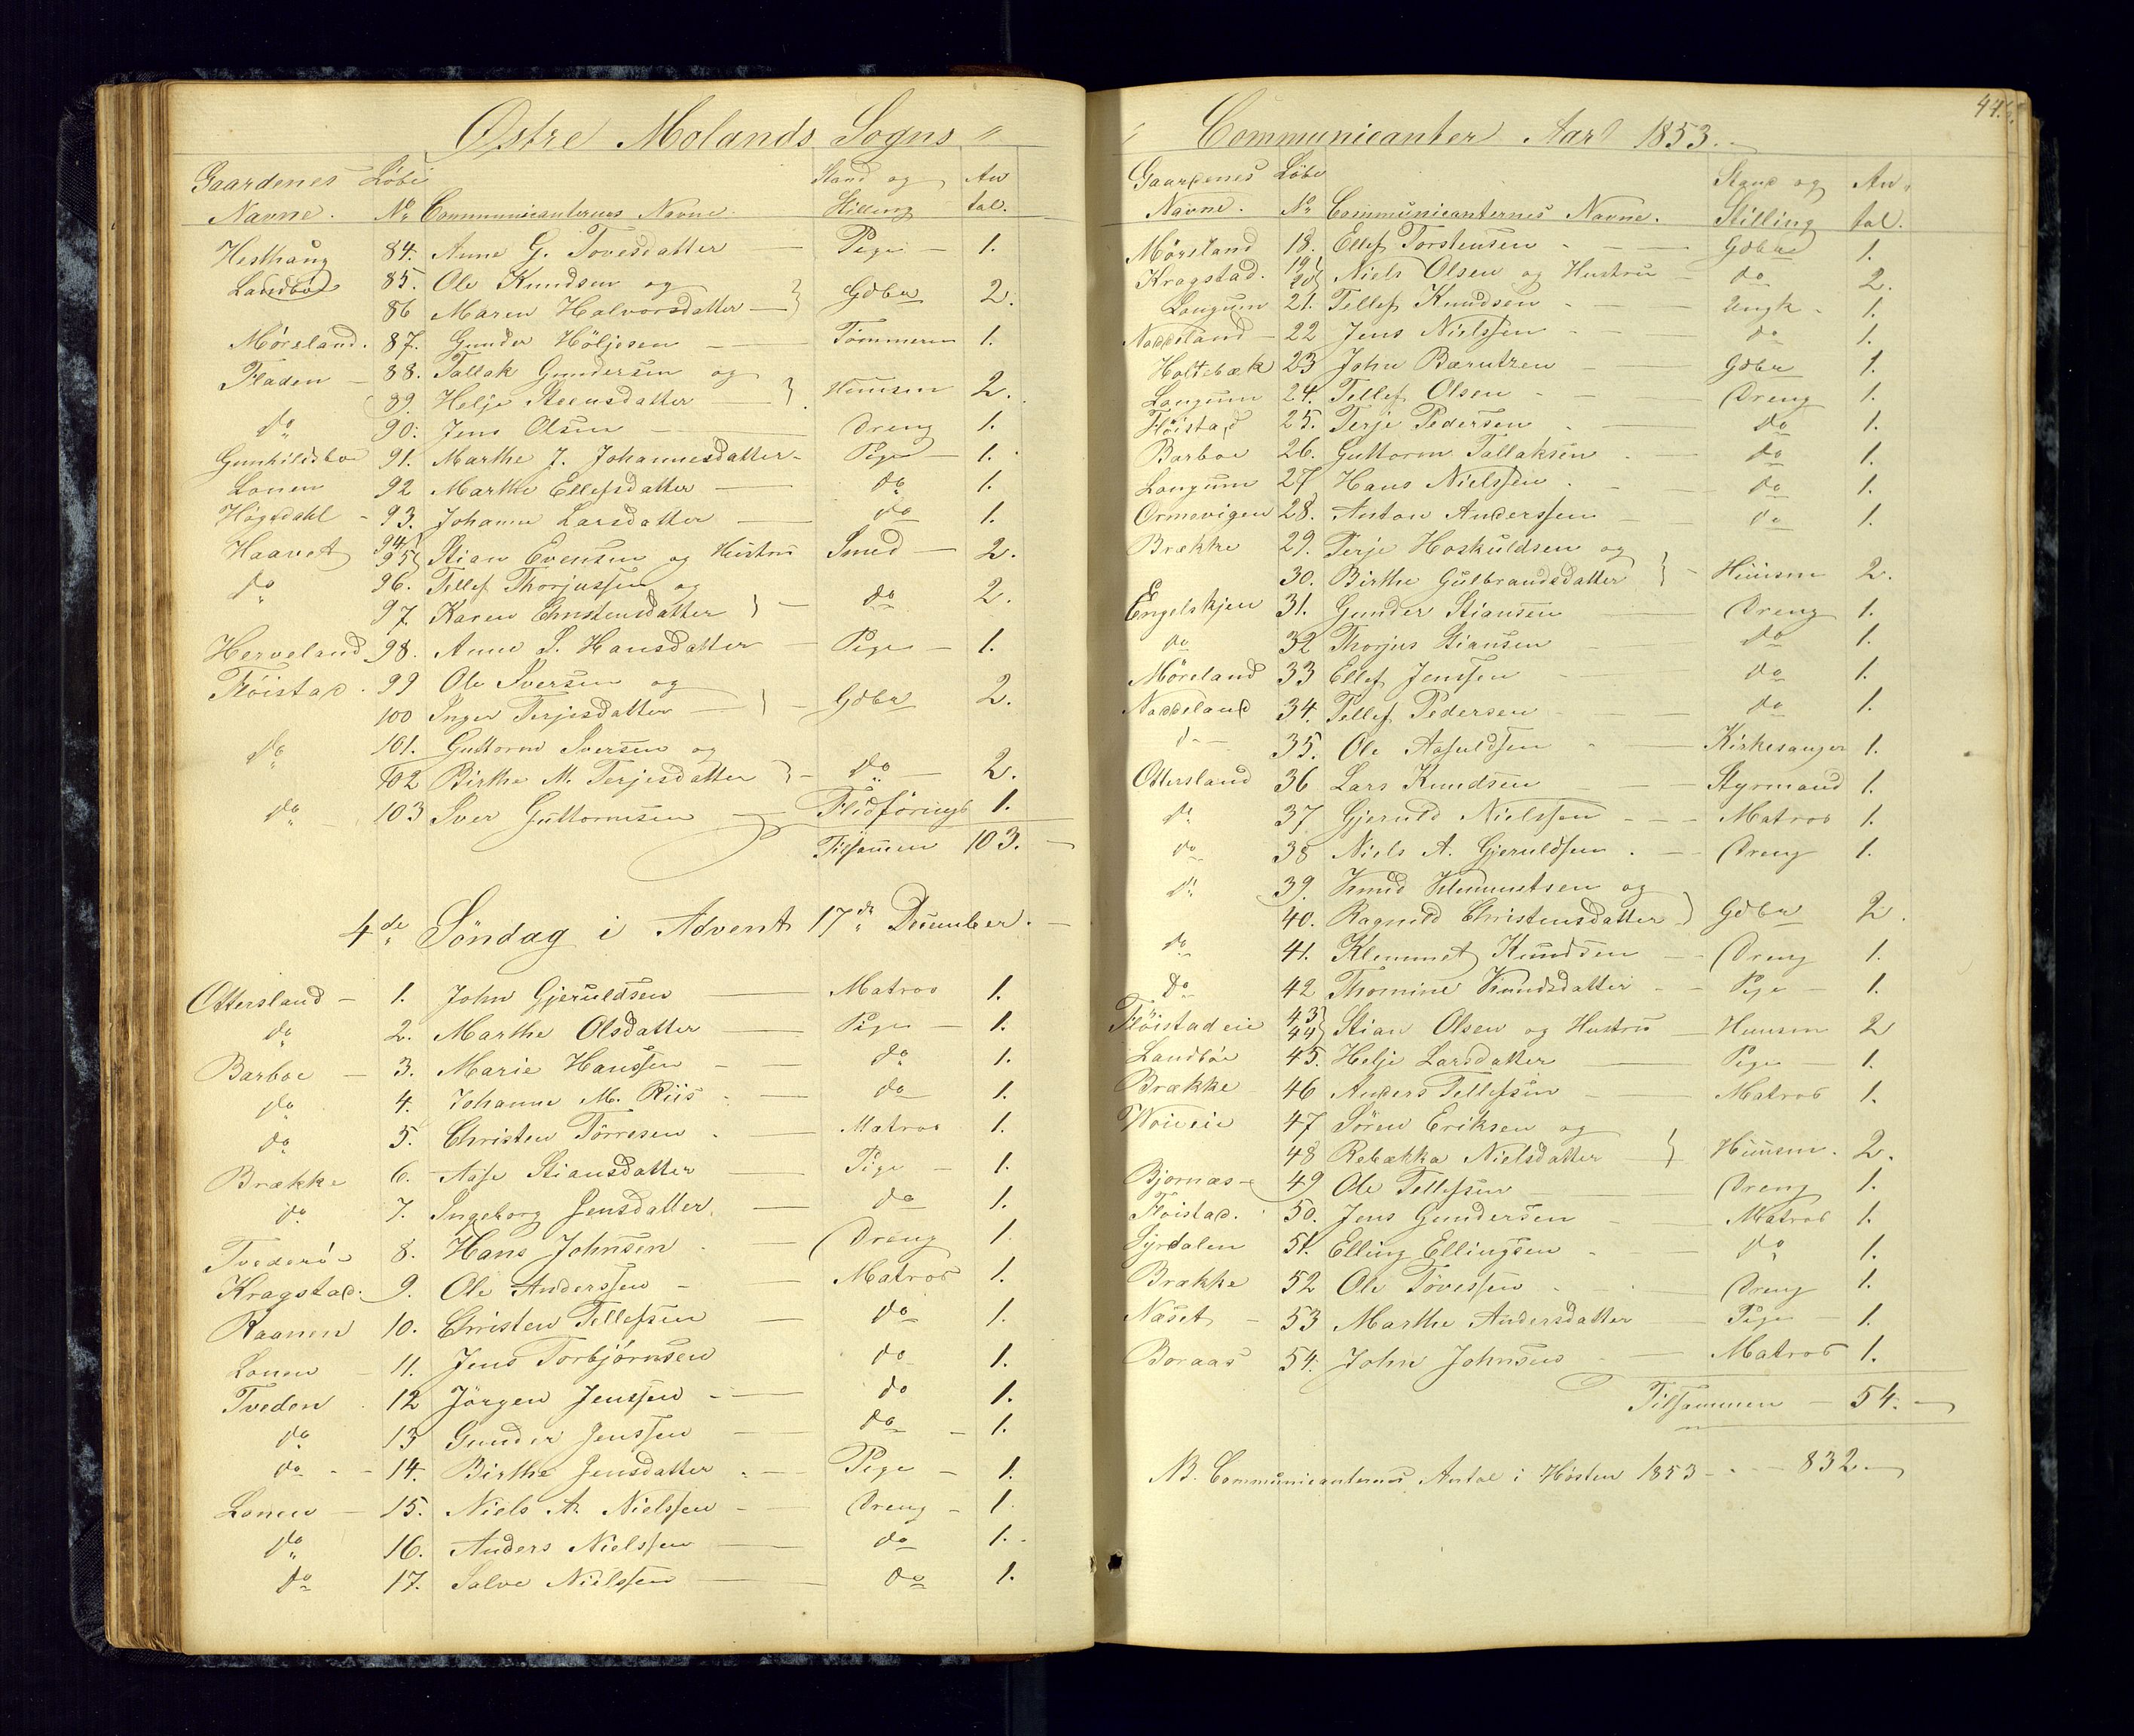 Østre Molands Sogns "
Gaardenes Løbe Stand og An
Navne. No. Communicanternes Navne. Stilling tal.
Hesthaug 84. Anne G. Tovesdatter — Pige — 1.
Landbøe 85. Ole Knudsen og
86 Maren Halvorsdatter — } Gdbr 2.
Møreland. 87. Gunder Höljesen — Tömmerm 1.
Fladen — 88. Tallak Gundersen og
89. Helje Steensdatter — } Huusm 2.
do 90. Jens Olsen — Dreng 1.
Gunhildsboe 91. Marthe J. Johannesdatter — Pige — 1.
Lonen 92 Marthe Ellefsdatter — do 1.
Högedahl — 93. Johanne Larsdatter — do 1.
Haavet 94 95} Stian Evensen og Hustru Smed — 2.
do 96. Tellef Thorjussen og
97. Karen Christensdatter } — do 2.
Herveland 98. Anne S. Hansdatter — Pige — 1.
Flöistad. 99 Ole Iversen og
100 Inger Terjesdatter — } — Gdbr 2.
do 101. Guttorm Iversen og
102 Birthe M. Terjesdatter } — do — 2.
do 103 Iver Guttormsen — Flidföringb 1.
Tilsammen 103. —
4de Söndag i Advent 17de December. —
Ottersland — 1. John Gjeruldsen — Matros 1.
do 2. Marthe Olsdatter — Pige — 1.
Barboe — 3. Marie Hanssen — do 1.
do 4. Johanne M. Riis — do 1.
do 5. Christen Törresen — Matros 1.
Brække 6. Aase Stiansdatter — Pige — 1.
do 7. Ingeborg Jensdatter. — do 1.
Tvederö 8. Hans Johnsen — Dreng 1.
Kragstad. 9. Ole Anderssen — Matros 1.
Raanen 10. Christen Tellefsen — do 1.
Lonen — 11. Jens Torbjörnsen do 1.
Tveden 12 Jörgen Jenssen — do 1.
do 13 Gunder Jenssen — do — 1.
do — 14. Birthe Jensdatter — Pige — 1.
Lonen — 15. Niels A. Nielssen — Dreng — 1.
do 16. Anders Nielssen — do 1.
do 17. Salve Nielssen — do 1.
44.
" Communicanter Aar 1853. —
Gaardenes Løbe Stand og An
Navne. No Communicanternes Navne. Stilling tal.
Møreland 18. Ellef Torstensen — Gdbr 1.
Kragstad. 19 20} Niels Olsen og Hustru — do 2.
Longum 21. Tellef Knudsen — Ungk — 1.
Naddeland — 22 Jens Nielssen — do 1.
Holtebæk 23 John Berntzen — Gdbr 1.
Longum 24. Tellef Olsen — Dreng 1.
Flöistad 25. Terje Pedersen — do 1.
Barboe 26. Guttorm Tallaksen — do 1.
Longum 27 Hans Nielssen — do 1.
Ormevigen 28. Anton Anderssen — do 1.
Brække 29. Terje Hoskuldsen og
30. Birthe Gulbrandsdatter } — Huusm 2.
Engelskjen 31. Gunder Stiansen — Dreng 1.
do 32 Thorjus Stiansen — do 1.
Møreland 33 Ellef Jenssen — do 1.
Naddeland 34. Tellef Pedersen — do 1.
do 35. Ole Aasuldsen — Kirkesanger 1.
Ottersland 36 Lars Knudsen — Styrmand 1.
do 37 Gjeruld Nielssen — Matros 1.
do 38 Niels A. Gjeruldsen — Dreng 1.
do 39. Knud Klemmetsen og
40. Ragnild Christensdatter } Gdbr 2.
do 41. Klemmet Knudsen — Dreng 1.
do 42 Thomine Knudsdatter — Pige — 1.
Flöistadeie 43 44} Stian Olsen og Hustru — Huusm 2
Landböe 45. Helje Larsdatter — Pige — 1.
Brække 46 Anders Tellefsen — Matros 1.
47 Sören Eriksen og
48 Rebækka Nielsdatter } Huusm. 2.
Bjornæs — 49 Ole Tellefsen — Dreng 1.
Flöistad. 50. Jens Gundersen — Matros 1.
Syrdalen 51. Elling Ellingsen — do 1.
Brække 52 Ole Tovessen — Dreng 1.
Næset — 53 Marthe Andersdatter Pige — 1.
Boraas 54. John Johnsen — Matros 1.
Tilsammen — 54. —
NB. Communicanternes Antal i Høsten 1853 — 832 —